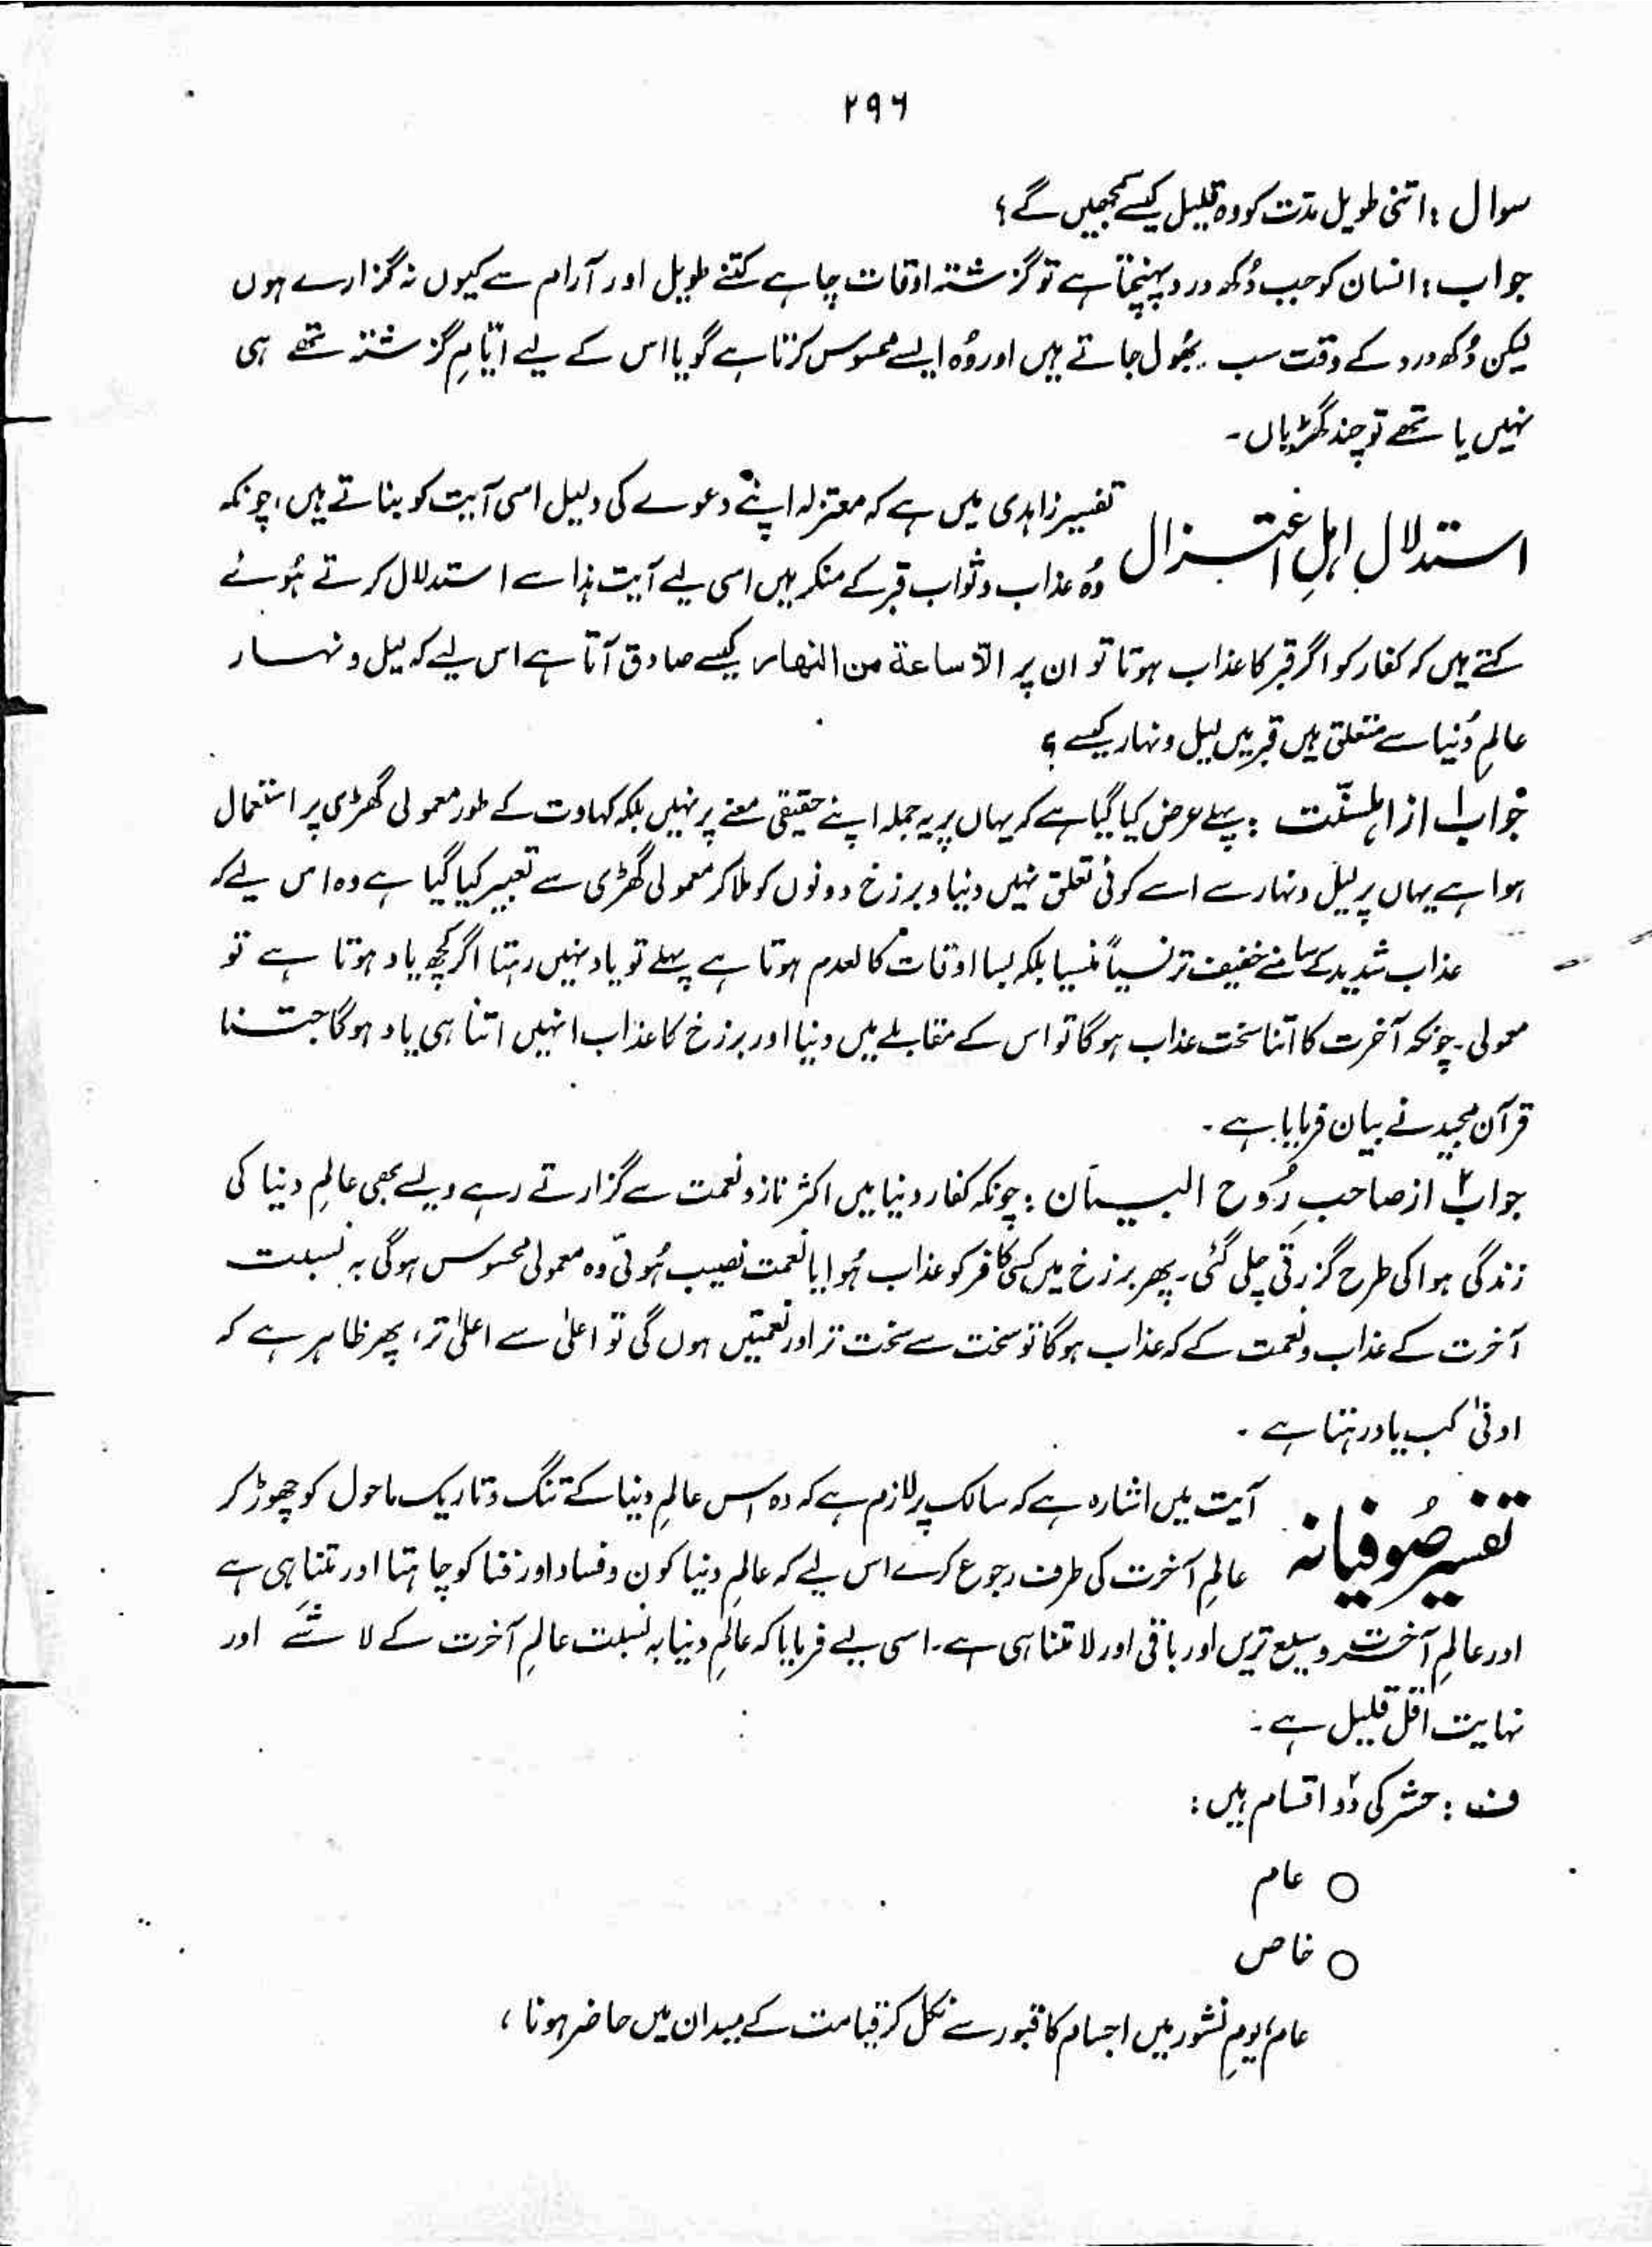 ۲۹۶
سوال : اتنی طویل مدّت کو وہ قلیل کیسے سمجھیں گے؟
جواب : انسان کو جب دُکھ درد پہنچتا ہے تو گزشتہ اوقات چاہے کتنے طویل اور آرام سے کیوں نہ گزارے ہوں
لیکن دُکھ درد کے وقت سب بھُول جاتے ہیں اور وُہ ایسے محسوس کرتا ہے گویا اس کے لیے ایّامِ گزشتہ تھے ہی
نہیں یا تھے تو چند گھڑیاں ۔
استدلال اہلِ اعتزال
تفسیر زاہدی میں ہے کہ معتزلہ اپنے دعوے کی دلیل اسی آیت کو بناتے ہیں، چونکہ
وُہ عذاب و ثواب قبر کے منکر ہیں اسی لیے آیت ہذا سے استدلال کرتے ہُوئے
کہتے ہیں کہ کفار کو اگر قبر کا عذاب ہوتا تو ان پر الّا ساعة من النهار کیسے صادق آتا ہے اس لیے کہ لیل و نہار
عالمِ دُنیا سے متعلق ہیں قبر میں لیل و نہار کیسے ؟
جواب ۱ از اہلسنّت : پہلے عرض کیا گیا ہے کہ یہاں پر یہ جملہ اپنے حقیقی معنے پر نہیں بلکہ کہاوت کے طور معمولی گھڑی پر استعمال
ہوا ہے یہاں پر لیل و نہار سے اسے کوئی تعلق نہیں دنیا و برزخ دونوں کو ملا کر معمولی گھڑی سے تعبیر کیا گیا ہے وہ اس لیے کہ
عذاب شدید کے سامنے خفیف تر نسیاً منسیا بلکہ بسا اوقات کالعدم ہوتا ہے پہلے تو یاد نہیں رہتا اگر کچھ یاد ہوتا ہے تو
معمولی ۔ چونکہ آخرت کا اتنا سخت عذاب ہوگا تو اس کے مقابلے میں دنیا اور برزخ کا عذاب انہیں اتنا ہی یاد ہوگا جتنا
قرآن مجید نے بیان فرمایا ہے ۔
جواب ۲ از صاحبِ رُوح البیان : چونکہ کفار دنیا میں اکثر ناز و نعمت سے گزارتے رہے ویسے بھی عالمِ دنیا کی
زندگی ہوا کی طرح گزرتی چلی گئی ۔ پھر برزخ میں کسی کافر کو عذاب ہُوا یا نعمت نصیب ہُوئی وہ معمولی محسوس ہوگی بہ نسبت
آخرت کے عذاب و نعمت کے کہ عذاب ہوگا تو سخت سے سخت تر اور نعمتیں ہوں گی تو اعلیٰ سے اعلیٰ تر، پھر ظاہر ہے کہ
ادنیٰ کب یاد رہتا ہے ۔
تفسیر صُوفیانہ
آیت میں اشارہ ہے کہ سالک پر لازم ہے کہ وہ اس عالمِ دنیا کے تنگ و تاریک ماحول کو چھوڑ کر
عالمِ آخرت کی طرف رجوع کرے اس لیے کہ عالمِ دنیا کون و فساد اور فنا کو چاہتا اور متناہی ہے
اور عالمِ آخرت وسیع تریں اور باقی اور لا متناہی ہے ۔ اسی لیے فرمایا کہ عالمِ دنیا بہ نسبت عالمِ آخرت کے لا شے اور
نہایت اقل قلیل ہے ۔
ف : حشر کی دو اقسام ہیں :
○ عام
○ خاص
عام، یومِ نشور میں اجسام کا قبور سے نکل کر قیامت کے میدان میں حاضر ہونا ،